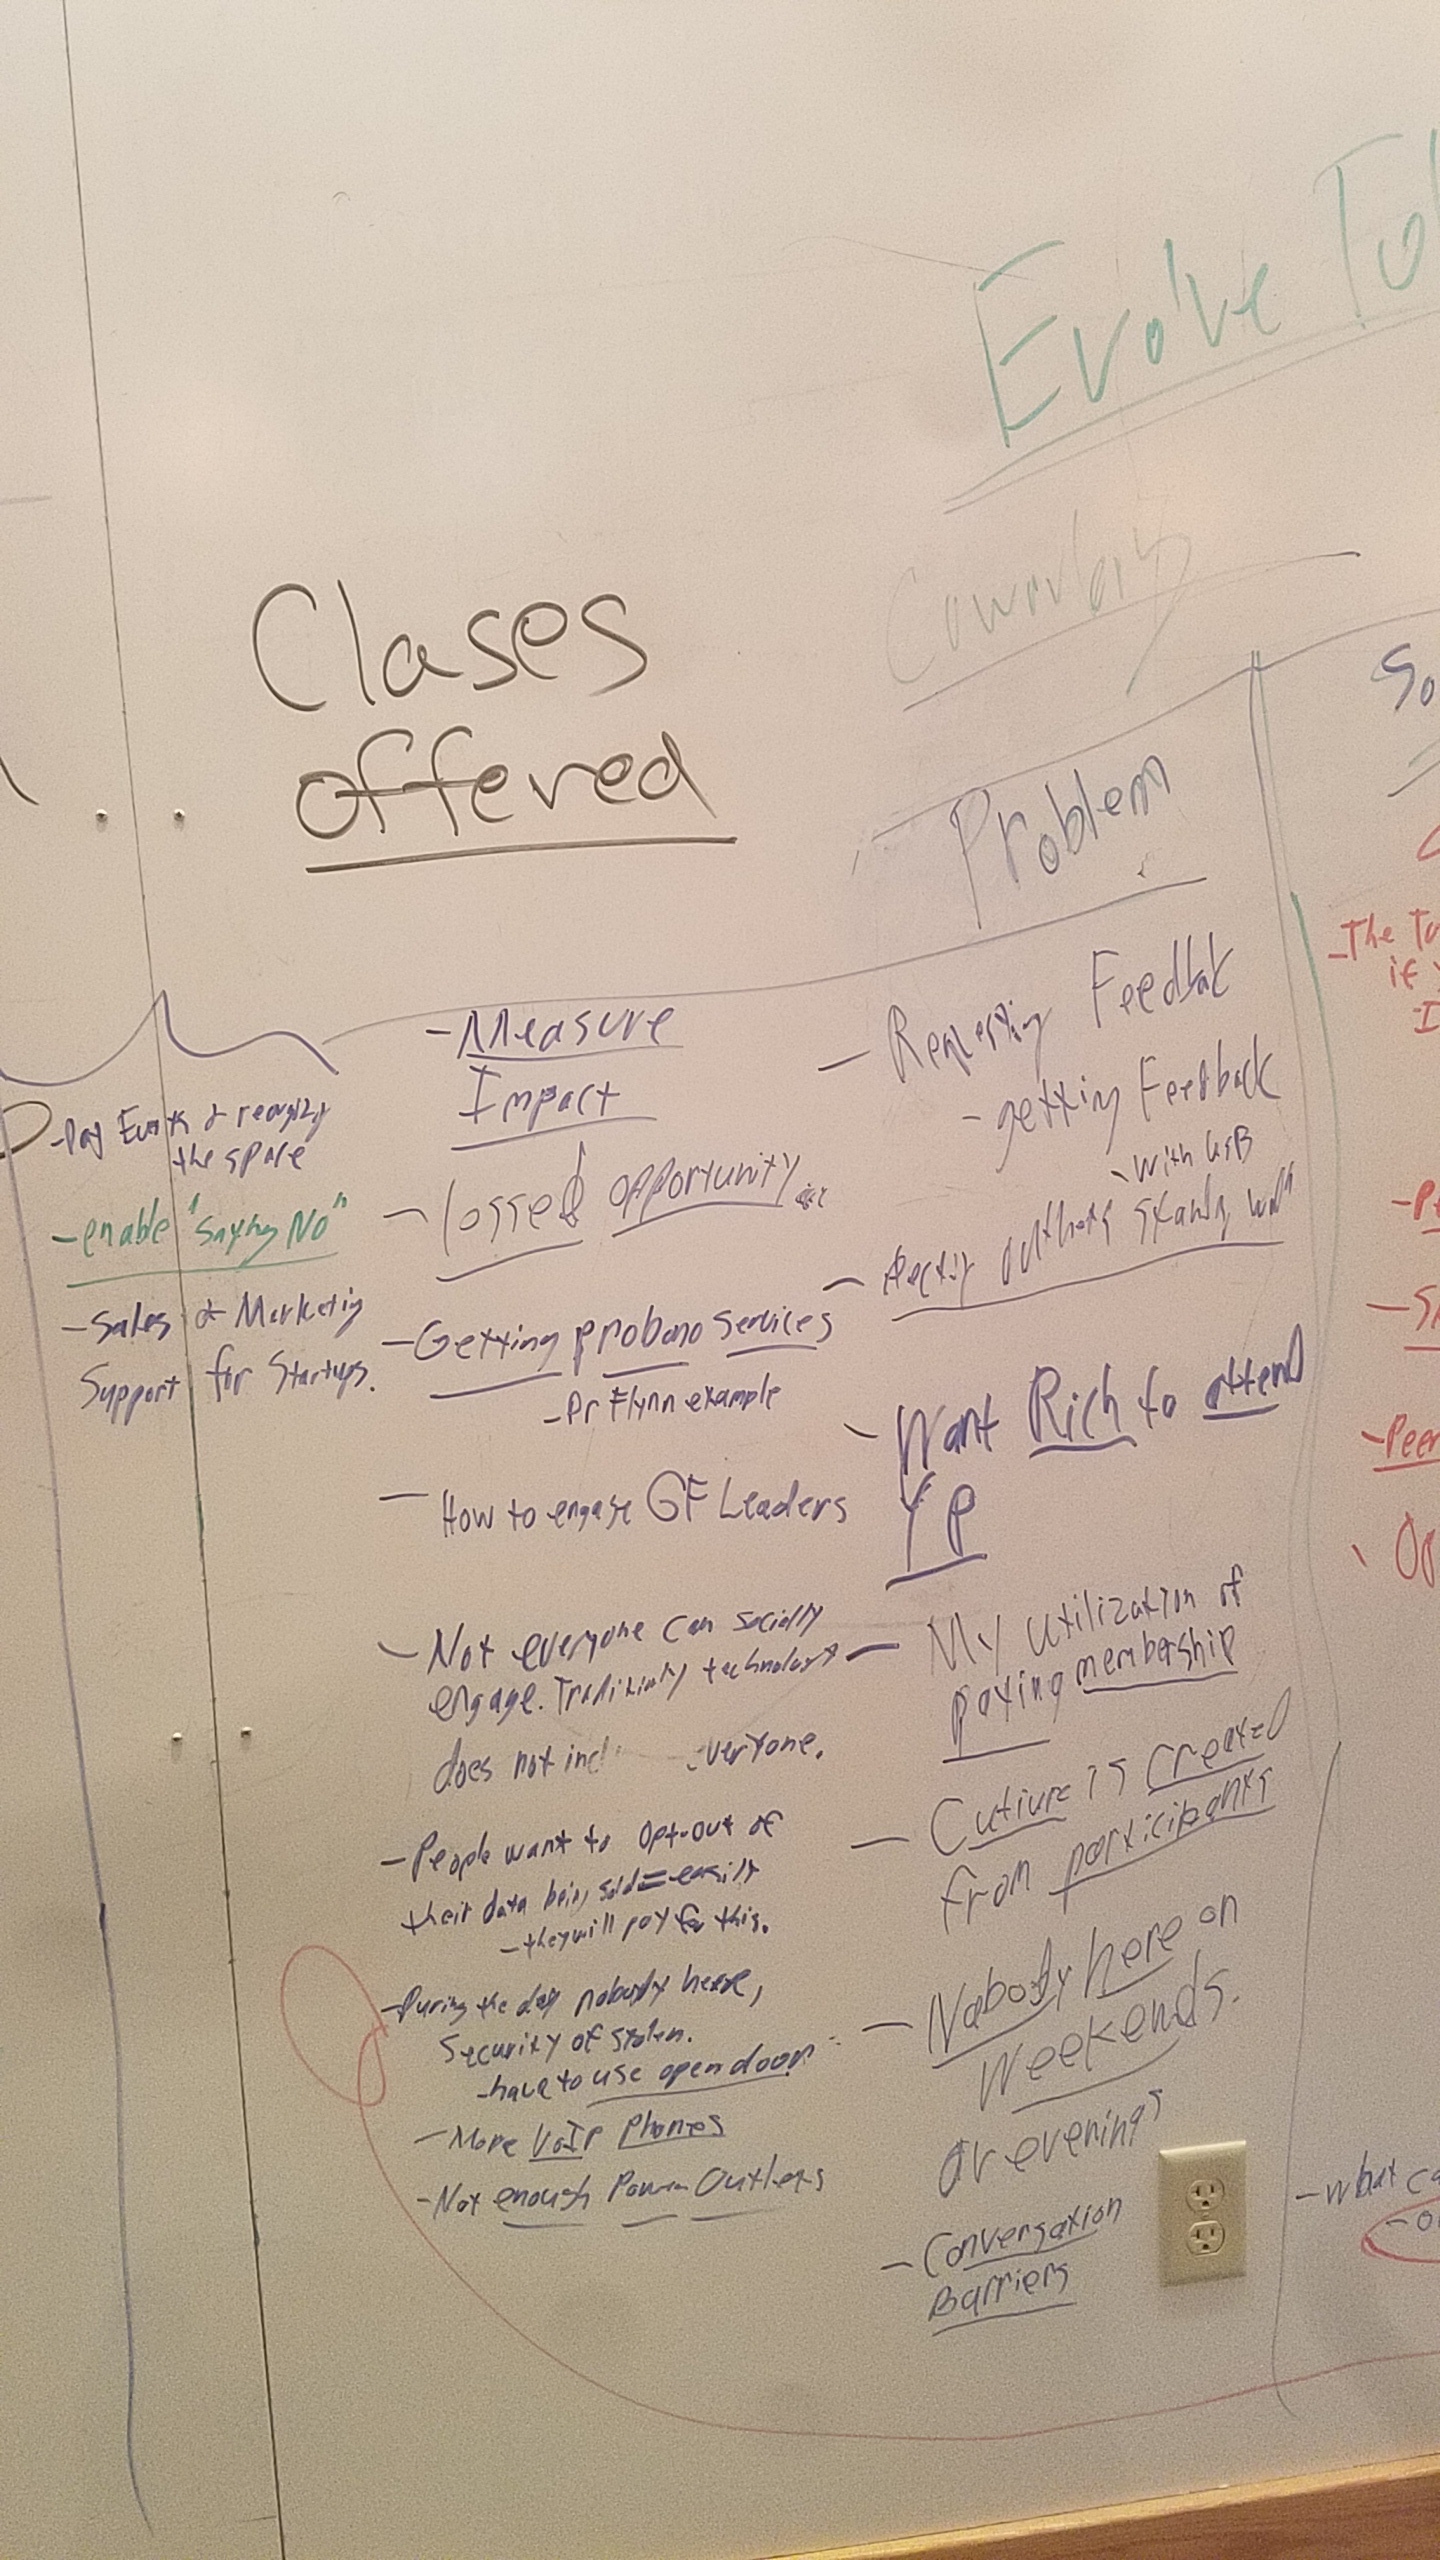 Evolve
Clases
offered
Problem
-enable "Saying NO"
-Sales & Marketing
Support for Startups.
-Measure
Impact
- lossed opportunity
-Getting probono services
-Dr Flynn example
- How to engage GF Leaders
- Not everyone can socially
engage.
does not everyone.
-People want to opt-out of
their data being sold = easily
-they will pay for this.
-During the day nobody here,
Security of stolen.
-have to use open door
- More VoIP Phones
-Not enough Power Outlets
- Requesting Feedback
- getting Feedback
with USB
- Want Rich to attend
YP
- My utilization of
paying membership
- Culture is created
from participants
- Nobody here on
Weekends.
or evenings
- Conversation
Barriers
-The
-Peer
-What